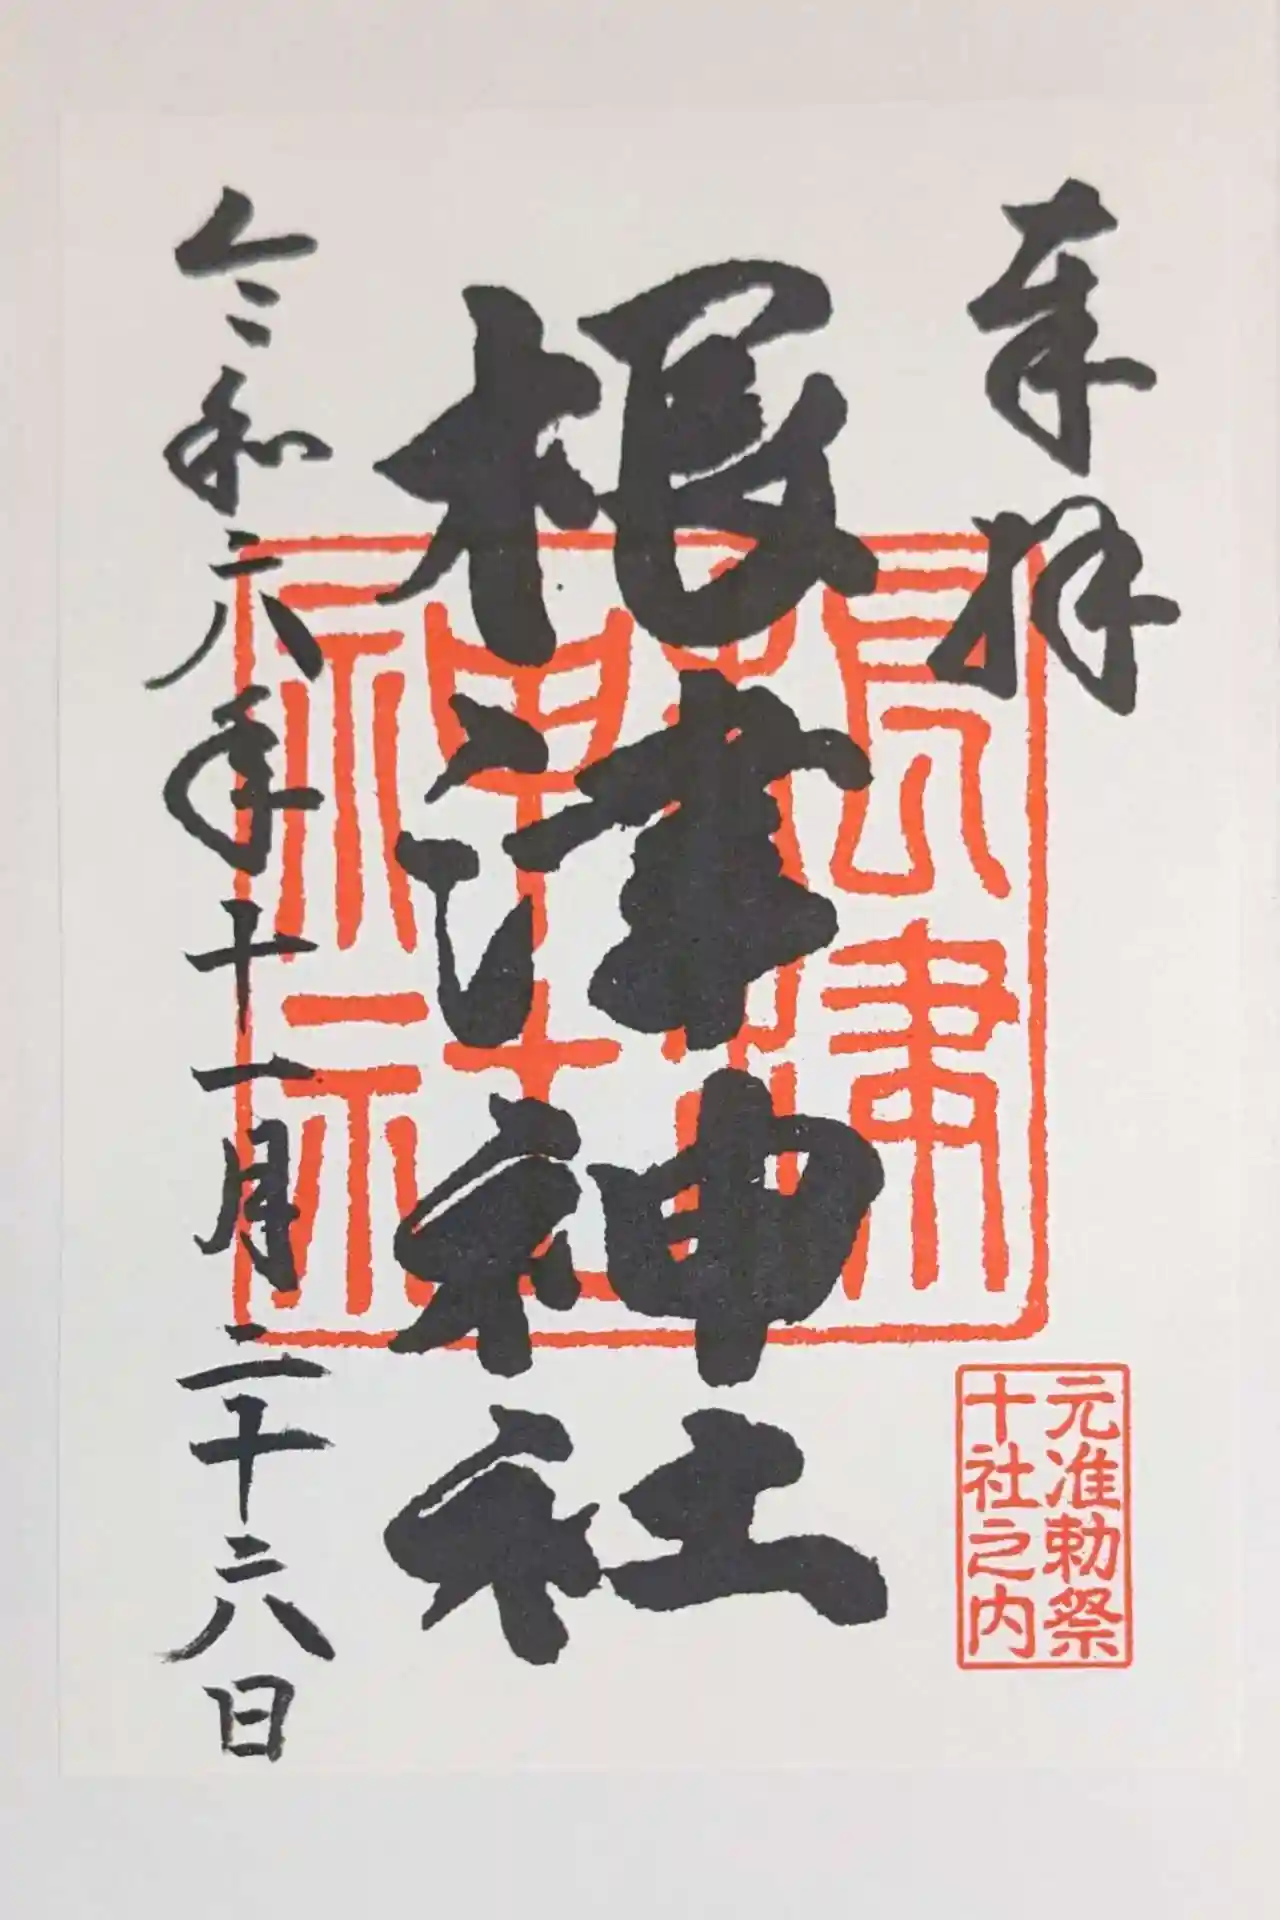 奉拝
根津神社
令和六年十一月二十六日
根津
神社
元准勅祭
十社之内